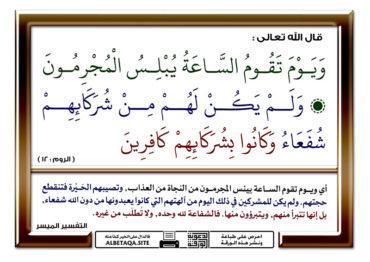 قال الله تعالى :
وَيَوْمَ تَقُومُ السَّاعَةُ يُبْلِسُ الْمُجْرِمُونَ
۞ وَلَمْ يَكُنْ لَهُمْ مِنْ شُرَكَائِهِمْ
شُفَعَاءُ وَكَانُوا بِشُرَكَائِهِمْ كَافِرِينَ
( الروم : ١٢ )
أي ويـوم تقوم السـاعة ييئس المجرمـون من النجاة من العذاب، وتصيبهم الحَيْرة فتنقطع
حجتهم. ولم يكن للمشركين في ذلك اليوم من آلهتهم التي كانوا يعبدونها من دون الله شفعاء،
بل إنها تتبرأ منهم، ويتبرؤون منها. فالشفاعة لله وحده، ولا تُطلَب من غيره.
التفسير الميسر
احرص على طباعة
ونشر هذه الورقة
فالدال على الخير كفاعله
ALBETAQA.SITE